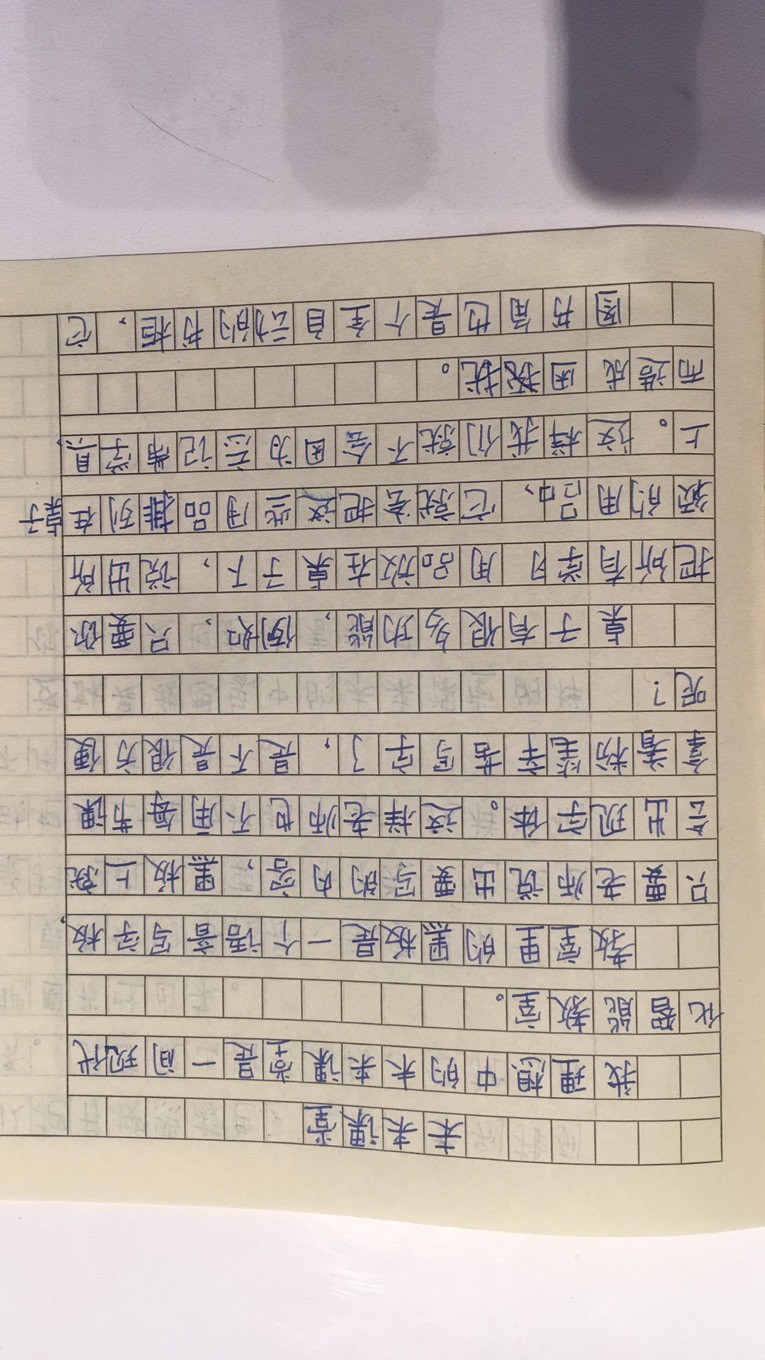 未来课堂
我理想中的未来课堂是一间现代
化智能教室。
教室里的黑板是一个语音写字板，
只要老师说出要写的内容，黑板上就
会出现字体。这样老师也不用每节课
拿着粉笔辛苦写字了，是不是很方便
呢？
桌子有很多功能，例如，只要你
把所有学习用品放在桌子下，说出所
须的用品，它就会把这些用品排列在桌子
上。这样我们就不会因为忘记带学具，
而造成困扰。
图书角也是个全自动的书柜，它